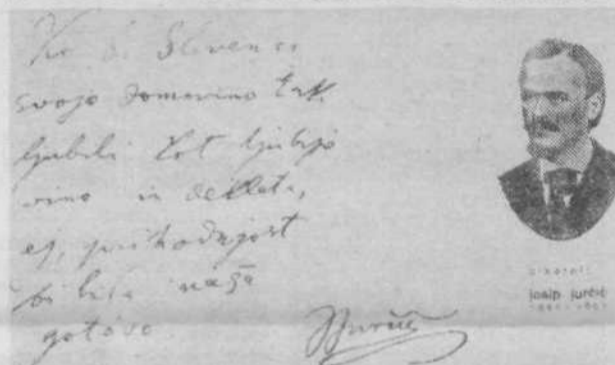 Ko bi Slovenci
svojo domovino tak
ljubili kot ljubijo
vino in dekleta,
ej, prihodnjost
bi bila naša
gotovo.
JJurčič
pisatelj
josip jurčič